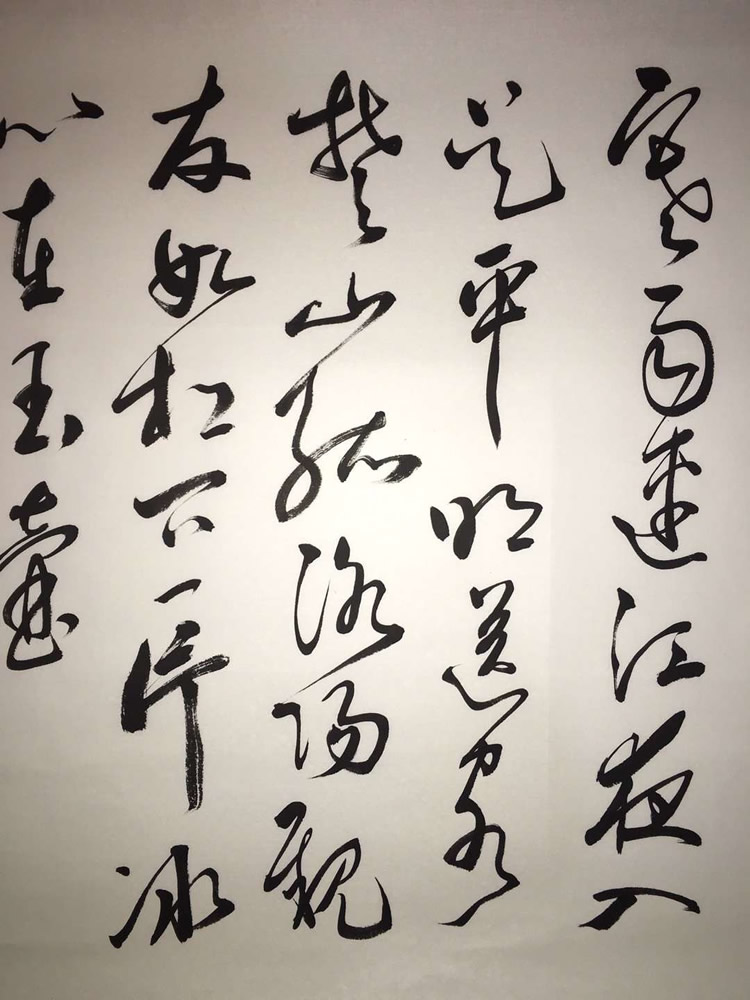 寒雨連江夜入
吴平明送客
楚山孤洛陽親
友如相問一片冰
心在玉壺